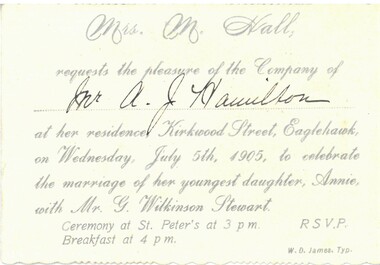 Mrs. M. Hall,
requests the pleasure of the Company of
Mr A. J. Hamilton
at her residence, Kirkwood Street, Eaglehawk,
on Wednesday, July 5th, 1905, to celebrate
the marriage of her youngest daughter, Annie,
with Mr. G. Wilkinson Stewart.
Ceremony at St. Peter's at 3 p m. R.S.V.P.
Breakfast at 4 p m.
W. D. James, Typ.